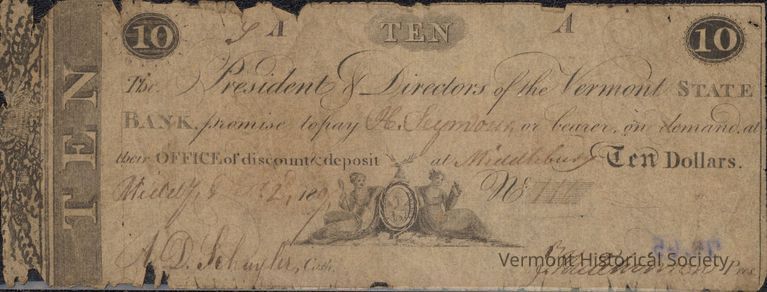 10 A TEN A 10
TEN
The President & Directors of the Vermont STATE
BANK, promise to pay H. Seymour, or bearer, on demand, at
their OFFICE of discount & deposit at Middlebury Ten Dollars.
180 No.
A. D. Schuyler, Cash. Pres.
Vermont Historical Society